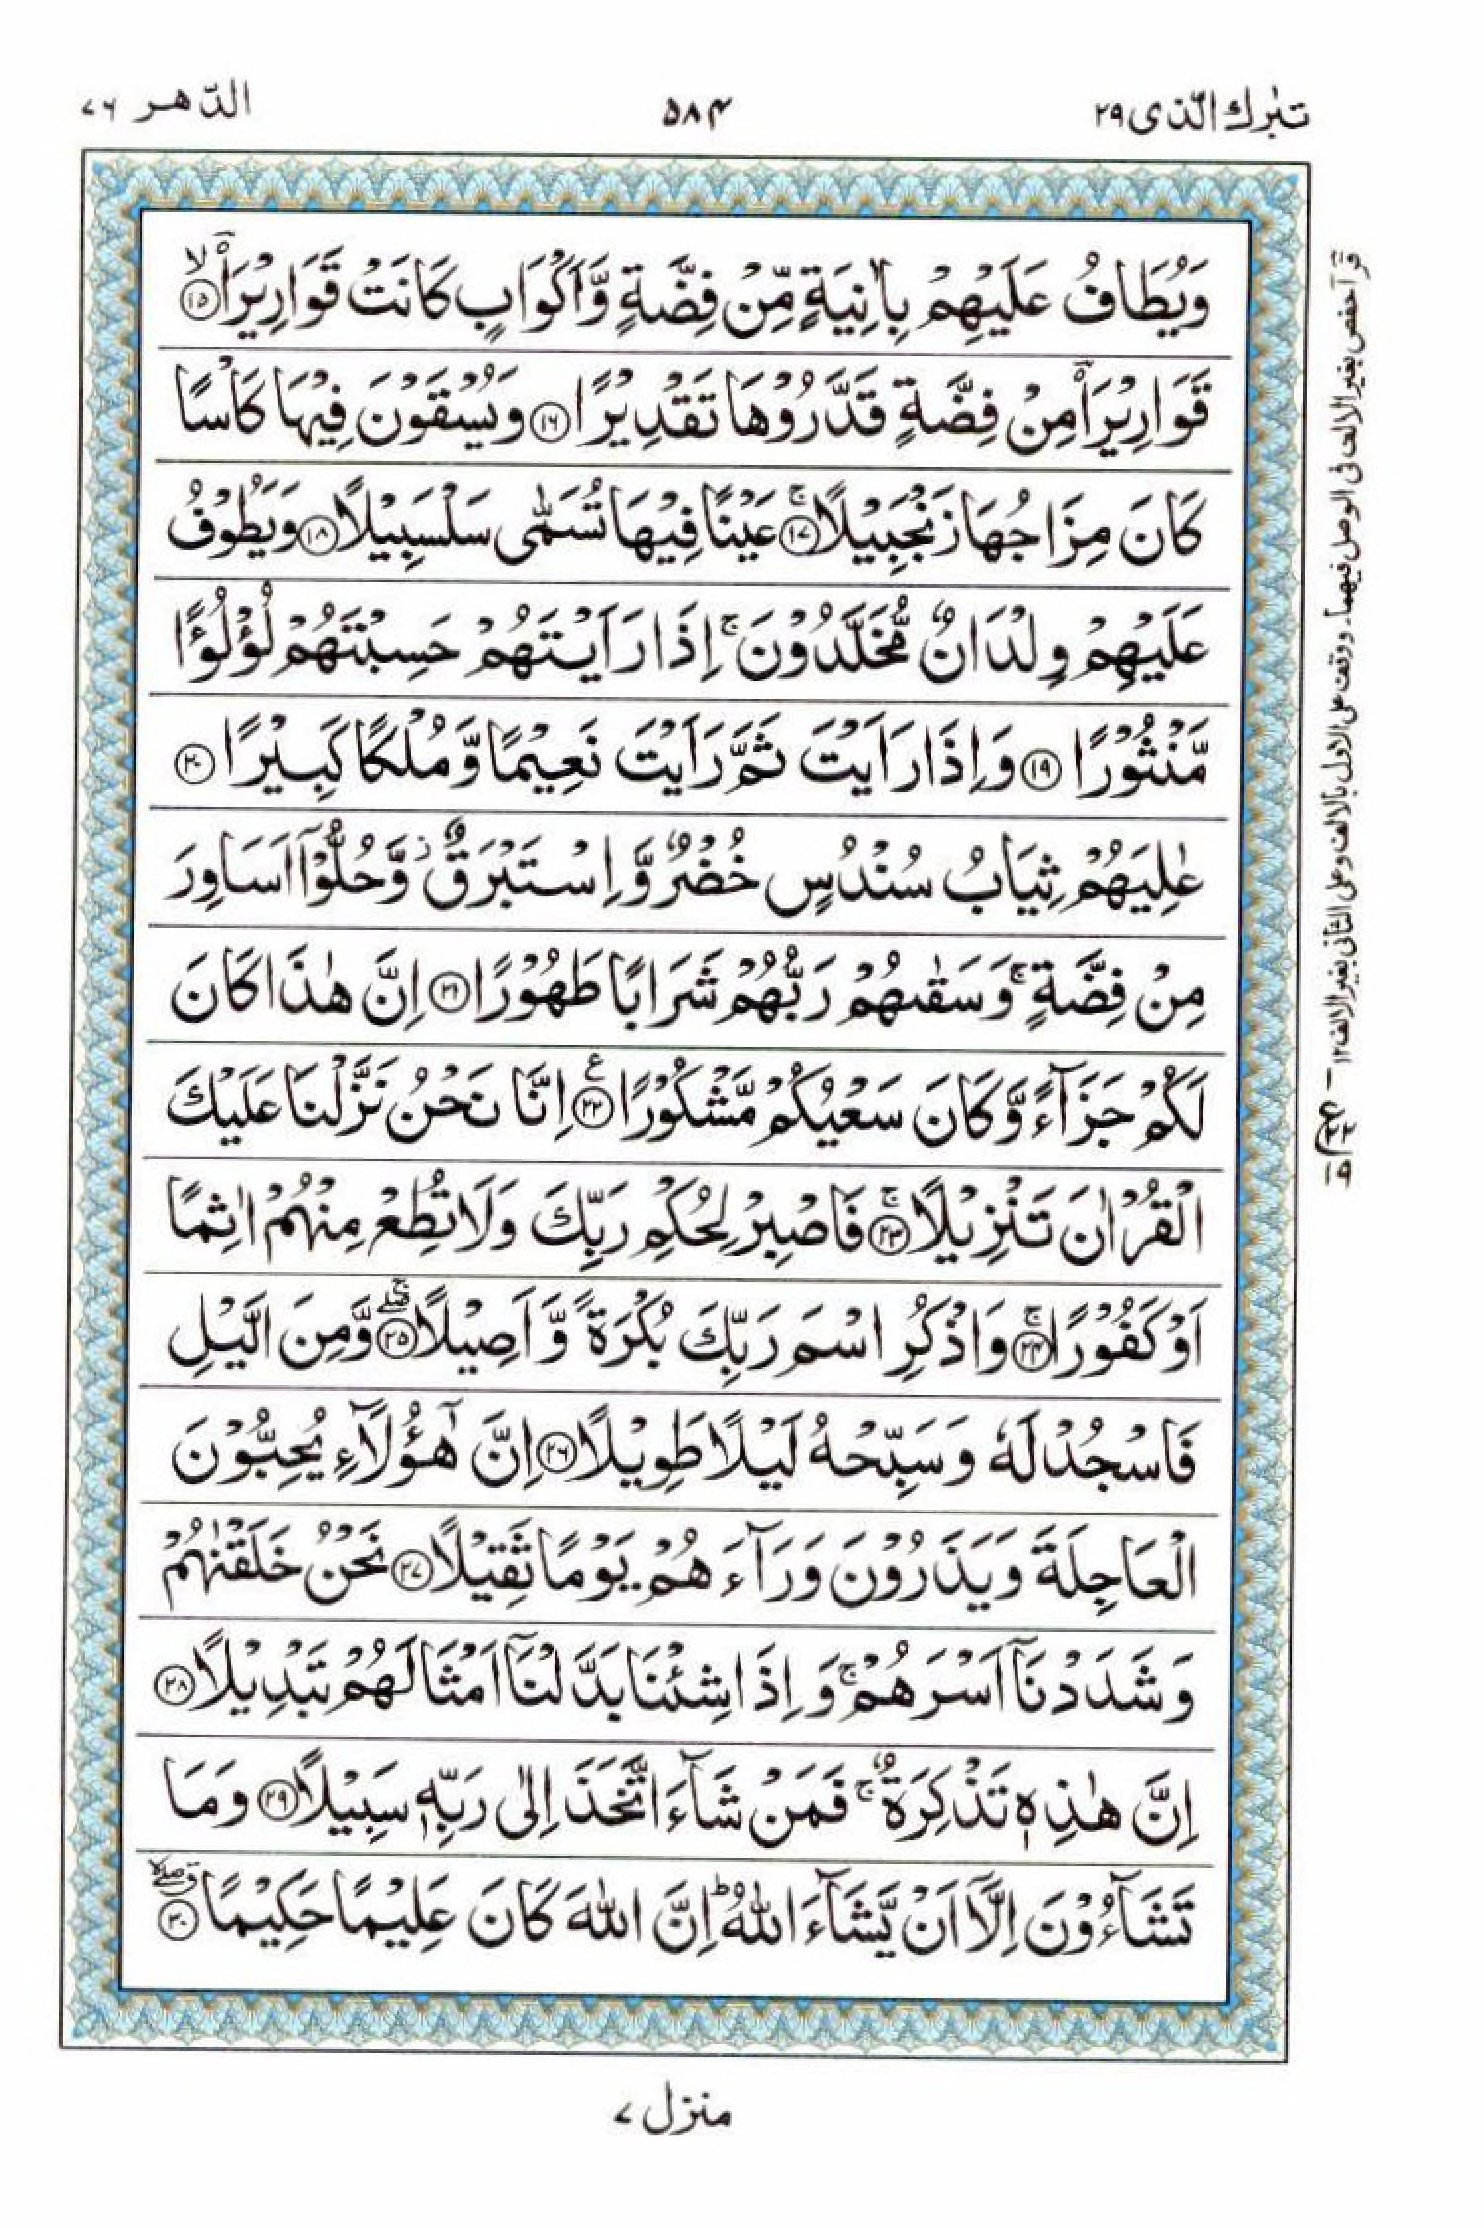 تبٰرك الّذی ۲۹
۵۸۴
الدّهر ۷۶
وَيُطَافُ عَلَيْهِمْ بِاٰنِيَةٍ مِّنْ فِضَّةٍ وَّاَكْوَابٍ كَانَتْ قَوَارِيْرَا۠ ۙ‏﴿۱۵﴾
قَوَارِيْرَا۠ مِنْ فِضَّةٍ قَدَّرُوْهَا تَقْدِيْرًا ﴿۱۶﴾ وَيُسْقَوْنَ فِيْهَا كَاْسًا
كَانَ مِزَاجُهَا زَنْجَبِيْلًا ۚ ﴿۱۷﴾ عَيْنًا فِيْهَا تُسَمّٰى سَلْسَبِيْلًا ﴿۱۸﴾ وَيَطُوْفُ
عَلَيْهِمْ وِلْدَانٌ مُّخَلَّدُوْنَ ۚ اِذَا رَاَيْتَهُمْ حَسِبْتَهُمْ لُؤْلُؤًا
مَّنْثُوْرًا ﴿۱۹﴾ وَاِذَا رَاَيْتَ ثَمَّ رَاَيْتَ نَعِيْمًا وَّمُلْكًا كَبِيْرًا ﴿۲۰﴾
عٰلِيَهُمْ ثِيَابُ سُنْدُسٍ خُضْرٌ وَّاِسْتَبْرَقٌ ۫ وَّحُلُّوْۤا اَسَاوِرَ
مِنْ فِضَّةٍ ۚ وَسَقٰىهُمْ رَبُّهُمْ شَرَابًا طَهُوْرًا ﴿۲۱﴾ اِنَّ هٰذَا كَانَ
لَكُمْ جَزَآءً وَّكَانَ سَعْيُكُمْ مَّشْكُوْرًا ﴿۲۲﴾ ع اِنَّا نَحْنُ نَزَّلْنَا عَلَيْكَ
الْقُرْاٰنَ تَنْزِيْلًا ۚ ﴿۲۳﴾ فَاصْبِرْ لِحُكْمِ رَبِّكَ وَلَا تُطِعْ مِنْهُمْ اٰثِمًا
اَوْ كَفُوْرًا ۚ ﴿۲۴﴾ وَاذْكُرِ اسْمَ رَبِّكَ بُكْرَةً وَّاَصِيْلًا ۖۚ ﴿۲۵﴾ وَّمِنَ الَّيْلِ
فَاسْجُدْ لَهٗ وَسَبِّحْهُ لَيْلًا طَوِيْلًا ﴿۲۶﴾ اِنَّ هٰٓؤُلَآءِ يُحِبُّوْنَ
الْعَاجِلَةَ وَيَذَرُوْنَ وَرَآءَهُمْ يَوْمًا ثَقِيْلًا ﴿۲۷﴾ نَحْنُ خَلَقْنٰهُمْ
وَشَدَدْنَاۤ اَسْرَهُمْ ۚ وَاِذَا شِئْنَا بَدَّلْنَاۤ اَمْثَالَهُمْ تَبْدِيْلًا ﴿۲۸﴾
اِنَّ هٰذِهٖ تَذْكِرَةٌ ۚ فَمَنْ شَآءَ اتَّخَذَ اِلٰى رَبِّهٖ سَبِيْلًا ﴿۲۹﴾ وَمَا
تَشَآءُوْنَ اِلَّاۤ اَنْ يَّشَآءَ اللّٰهُ ؕ اِنَّ اللّٰهَ كَانَ عَلِيْمًا حَكِيْمًا ۖ ﴿۳۰﴾
قرأ حفص بغير الالف فی الوصل فيهما۔ ووقف علی الاول بالالف وعلی الثانی بغير الالف ۱۲
منزل ۷